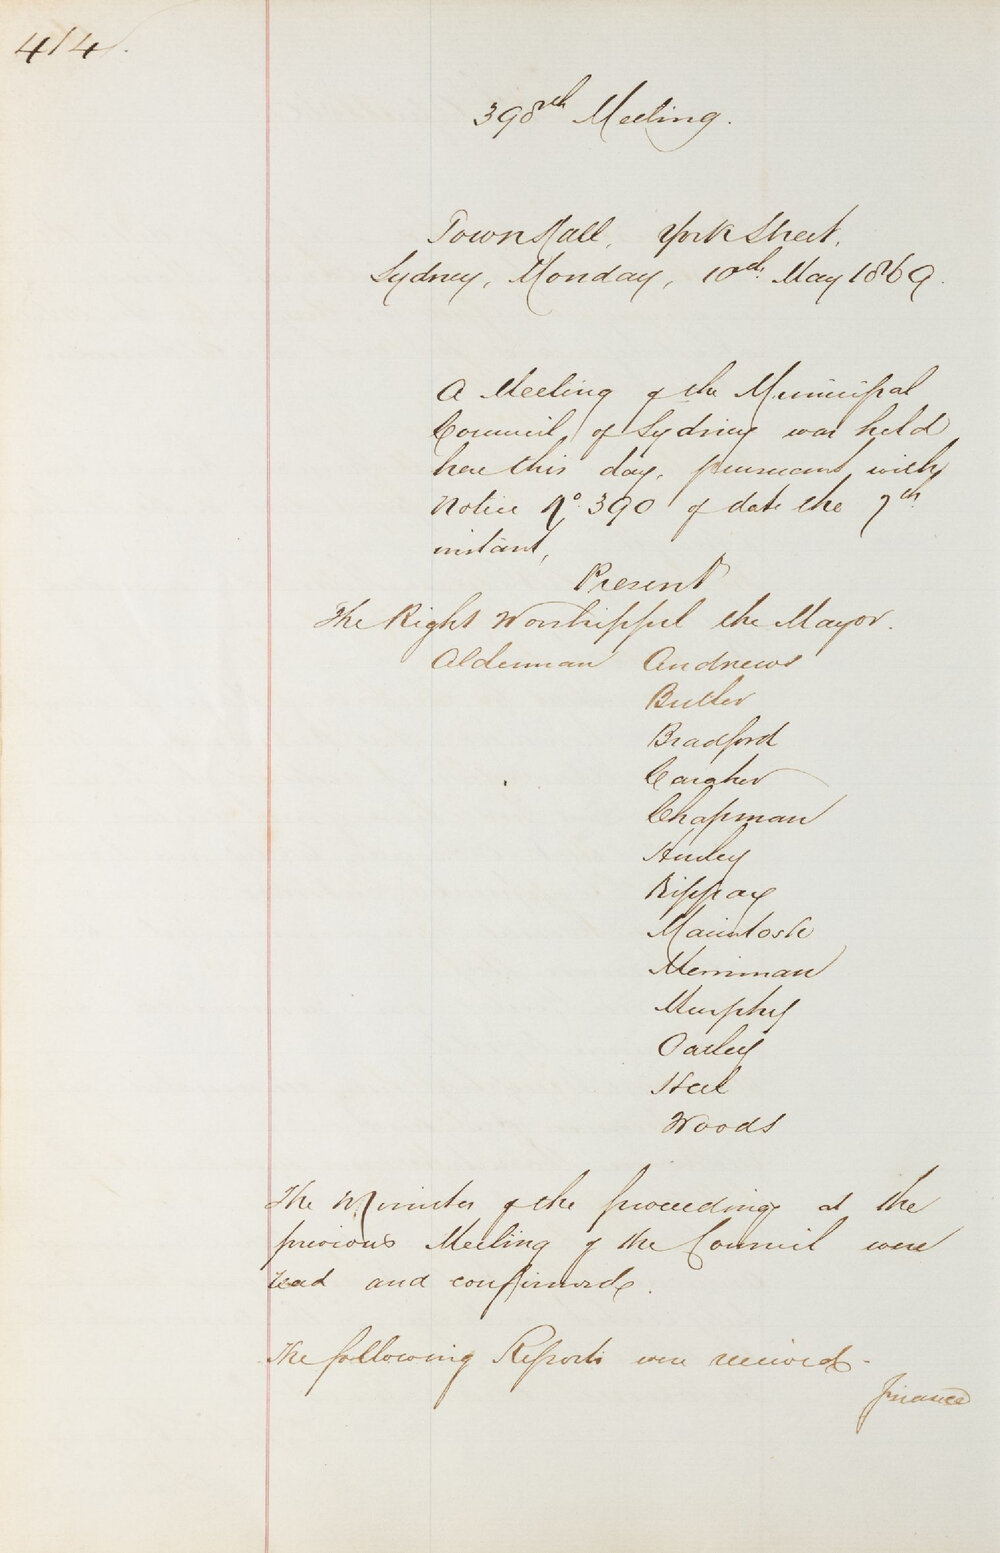 414.
398th Meeting.
Town Hall, York Street,
Sydney, Monday, 10th May 1869.
A Meeting of the Municipal
Council of Sydney was held
here this day, pursuant with
Notice No. 390 of date the 7th
instant,
Present
The Right Worshipful the Mayor.
Alderman Andrews
Butler
Bradford
Caraher
Chapman
Hurley
Kippax
Macintosh
Merriman
Murphy
Oatley
Steel
Woods
The Minutes of the proceedings at the
previous Meeting of the Council were
read and confirmed.
The following Reports were received.
Finance